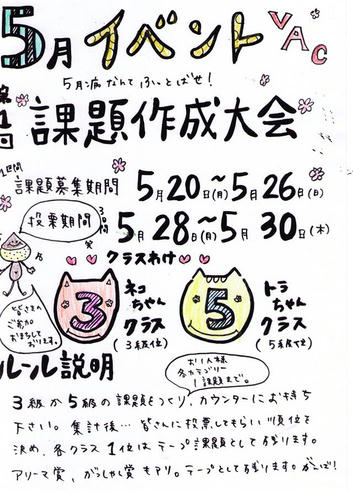 5月イベント VAC
5月病なんてふっとばせ!
第1回 課題作成大会
1週間
課題募集期間 5月20日(月)〜5月26日(日)
投票期間 3日間 5月28日(月)〜5月30日(木)
クラスわけ
皆さまの
ご参加
おまちして
おります。
3 ネコちゃんクラス (3級位)
5 トラちゃんクラス (5級位)
お1人様
各カテゴリー
1課題まで。
ルール説明
3級か5級の課題をつくり、カウンターにお持ち
下さい。集計後…皆さんに投票してもらい順位を
決め、各クラス1位はテープ課題として残ります。
アリーマ賞、がっしゃん賞もアリ。テープとして残ります。がんば!